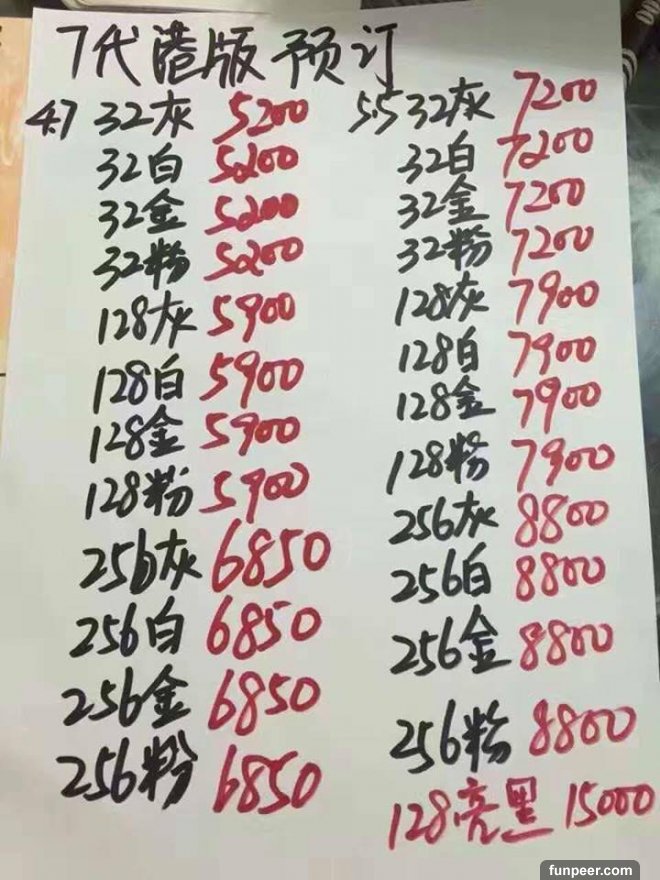 7代港版 预订
4.7 32灰 5200
32白 5200
32金 5200
32粉 5200
128灰 5900
128白 5900
128金 5900
128粉 5900
256灰 6850
256白 6850
256金 6850
256粉 6850
5.5 32灰 7200
32白 7200
32金 7200
32粉 7200
128灰 7900
128白 7900
128金 7900
128粉 7900
256灰 8800
256白 8800
256金 8800
256粉 8800
128亮黑 15000
funpeer.com